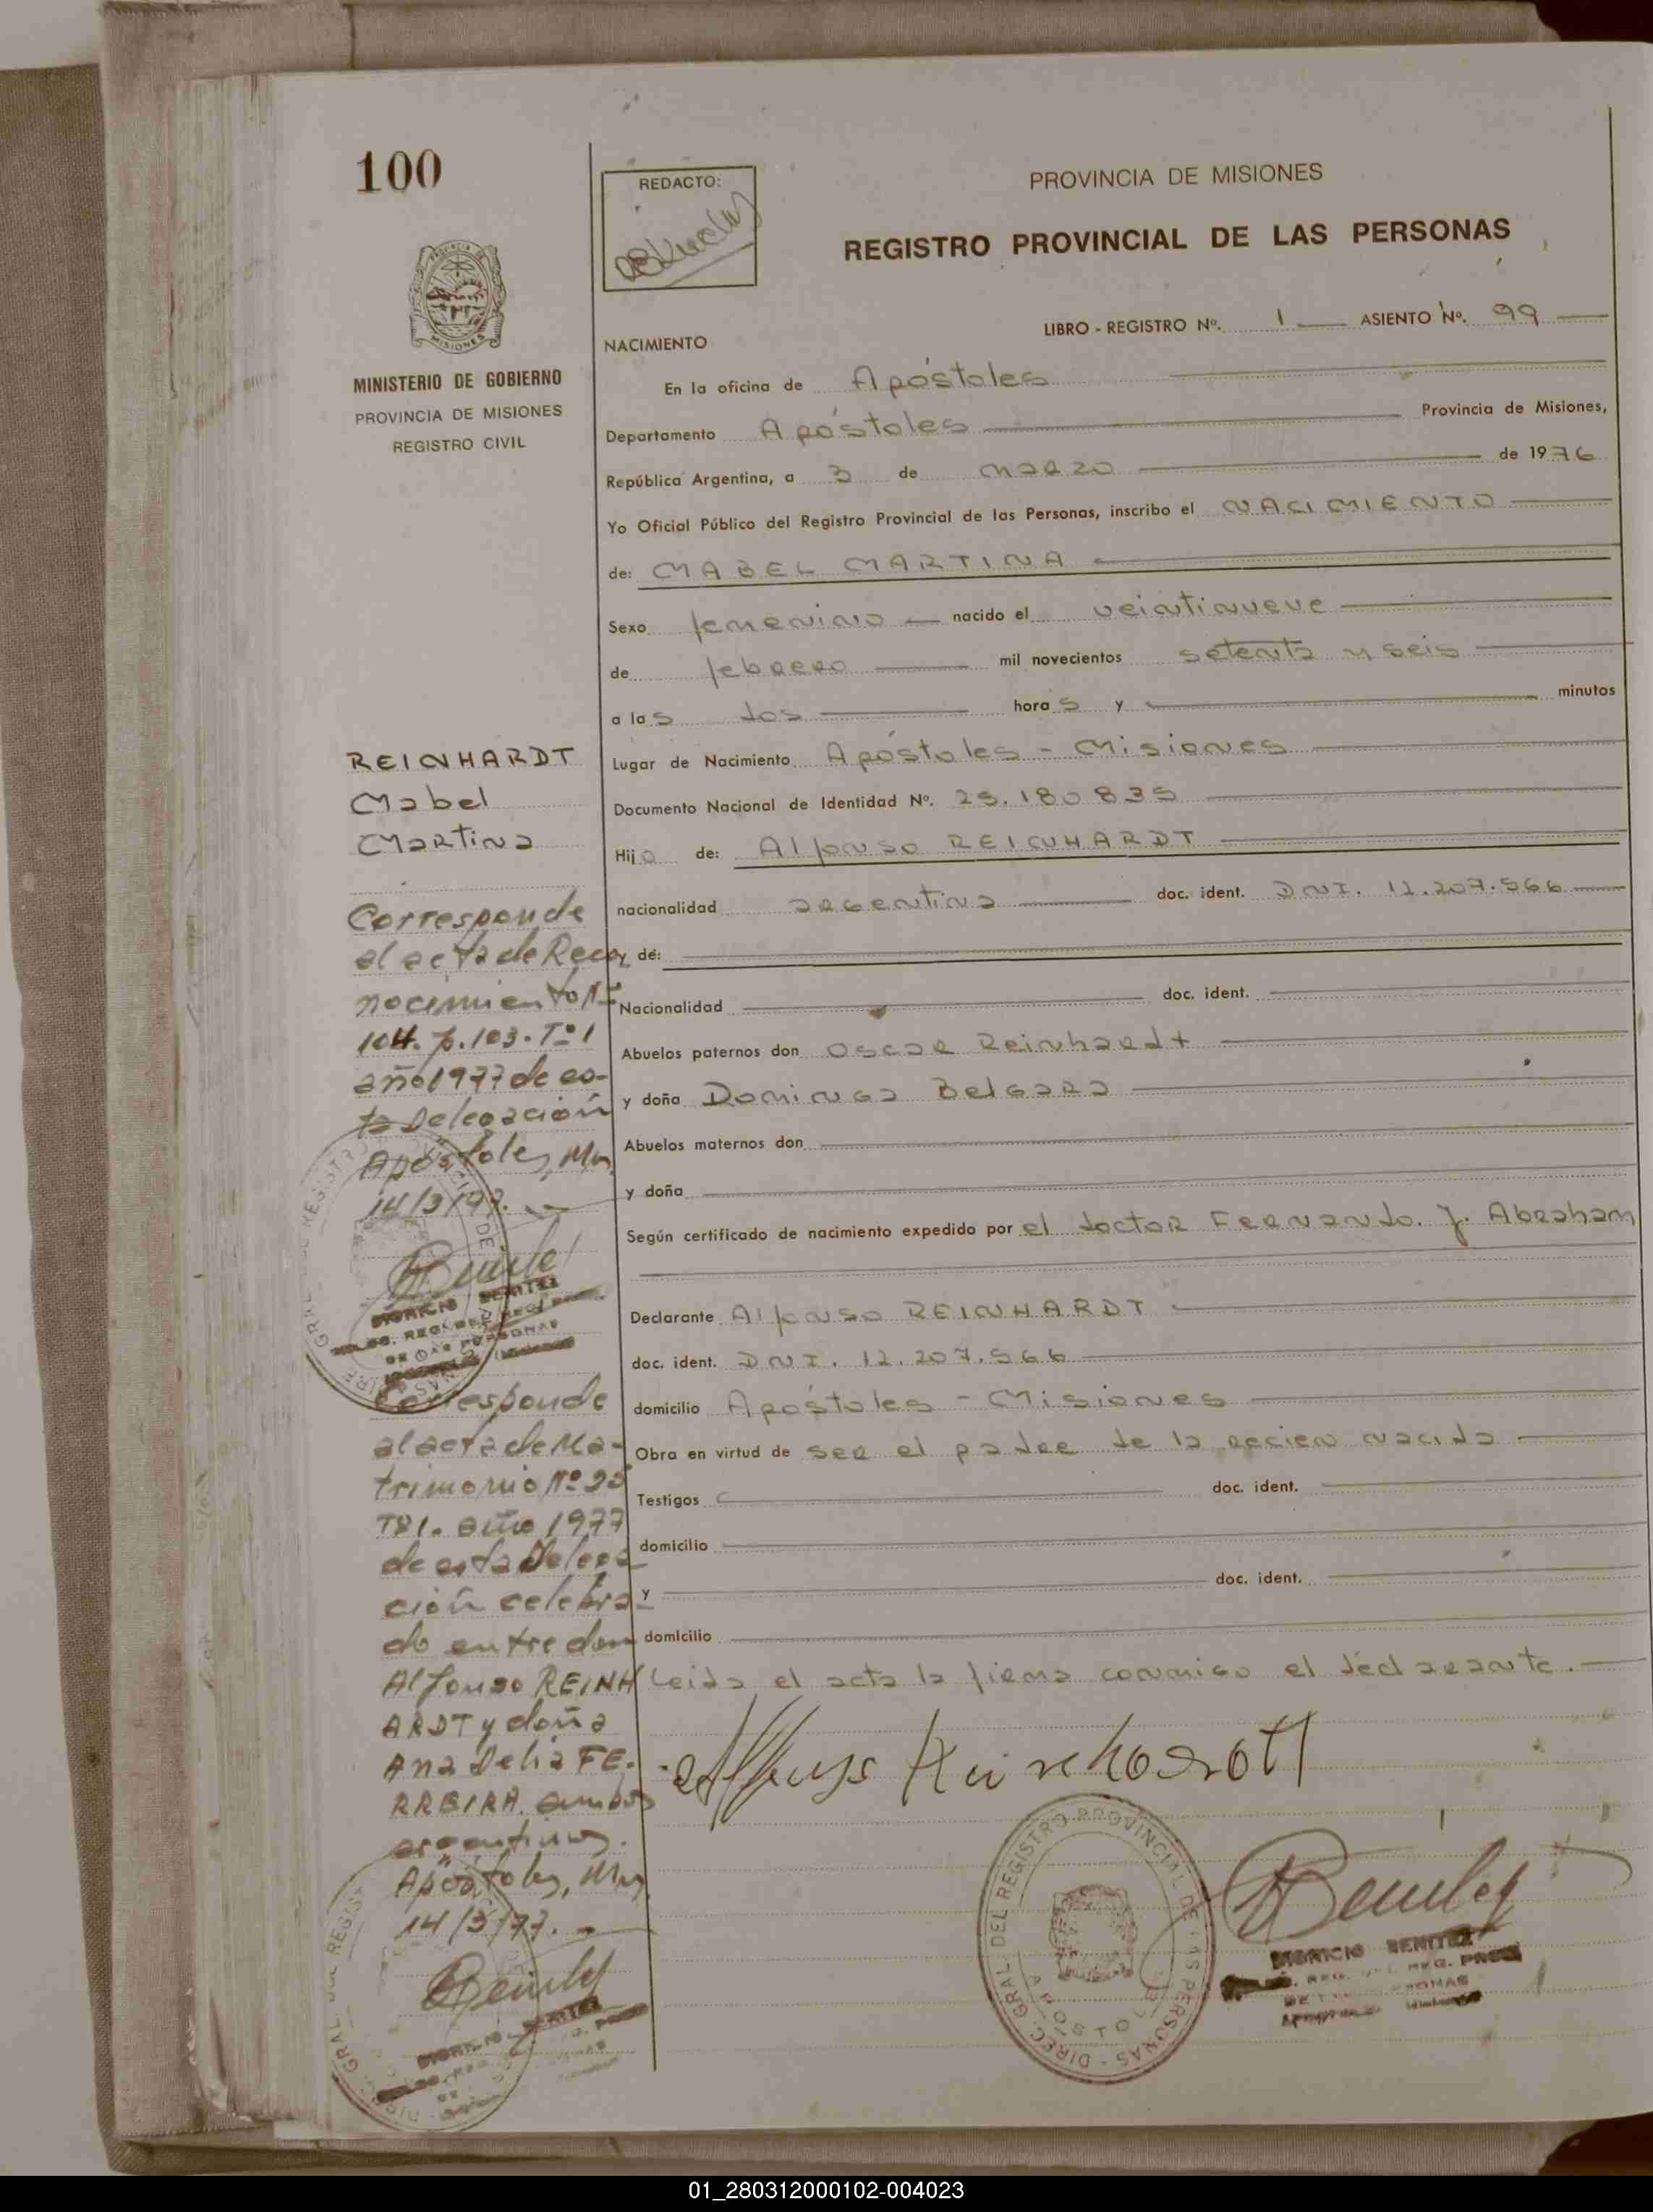 100
REDACTO:
PROVINCIA DE MISIONES
REGISTRO PROVINCIAL DE LAS PERSONAS
PROVINCIA
MISIONES
MINISTERIO DE GOBIERNO
PROVINCIA DE MISIONES
REGISTRO CIVIL
LIBRO - REGISTRO Nº. 1 ASIENTO Nº. 99
NACIMIENTO
En la oficina de Apóstoles
Departamento Apóstoles Provincia de Misiones,
República Argentina, a 3 de marzo de 1976
Yo Oficial Público del Registro Provincial de las Personas, inscribo el NACIMIENTO
de: MABEL MARTINA
Sexo femenino nacido el veintinueve
de febrero mil novecientos setenta y seis
a las dos horas y minutos
Lugar de Nacimiento Apóstoles - Misiones
Documento Nacional de Identidad Nº. 25.180835
Hija de: Alfonso REINHARDT
nacionalidad argentina doc. ident. DNI. 12.207.566
y de:
Nacionalidad doc. ident.
Abuelos paternos don Oscar Reinhardt
y doña Dominga Belgara
Abuelos maternos don
y doña
Según certificado de nacimiento expedido por el doctor Fernando. J. Abraham
Declarante Alfonso REINHARDT
doc. ident. DNI. 12.207.566
domicilio Apóstoles - Misiones
Obra en virtud de ser el padre de la recien nacida
Testigos doc. ident.
domicilio
y doc. ident.
domicilio
Leida el acta la firma conmigo el declarante.
REINHARDT
Mabel
Martina
Corresponde
al acta de Reco
nocimiento Nº
104. f. 103. Tº 1
año 1977 de es-
ta Delegación
Apóstoles, Mns
14/3/77.
Corresponde
al acta de Ma-
trimonio Nº 25
Tº 1. año 1977
de esta Delega
ción celebra
do entre don
Alfonso REINH
ARDT y doña
Ana Delia FE-
RREIRA. ambos
argentinos.
Apóstoles, Mns
14/3/77.
DIREC. GRAL. DEL REGISTRO PROVINCIAL DE LAS PERSONAS
APOSTOLES
BENITEZ
01_280312000102-004023